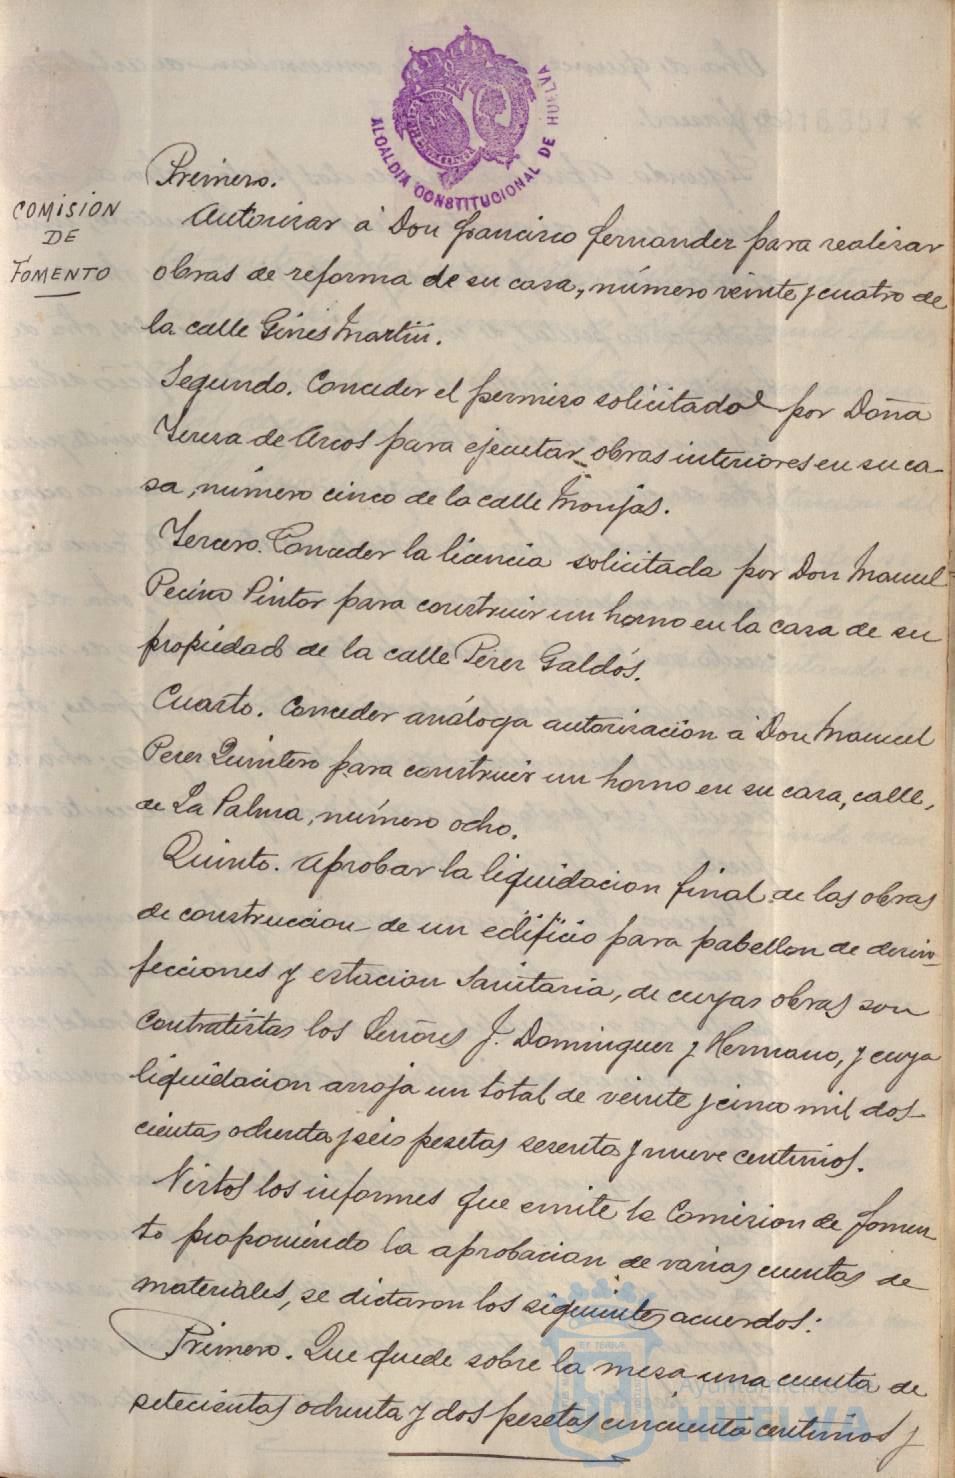 ALCALDÍA CONSTITUCIONAL DE HUELVA
COMISION
DE
FOMENTO
Primero.
Autorizar á Don Francisco Fernandez para realizar
obras de reforma de su casa, número veinte y cuatro de
la calle Ginés Martín.
Segundo. Conceder el permiso solicitado por Doña
Teresa de Arcos para ejecutar obras interiores en su ca-
sa, número cinco de la calle Monjas.
Tercero. Conceder la licencia solicitada por Don Manuel
Pecino Pintor para construir un horno en la casa de su
propiedad de la calle Pérez Galdós.
Cuarto. Conceder análoga autorización á Don Manuel
Perez Quintero para construir un horno en su casa, calle,
de La Palma, número ocho.
Quinto. Aprobar la liquidacion final de las obras
de construccion de un edificio para pabellon de desin-
fecciones y estacion Sanitaria, de cuyas obras son
contratistas los Señores J. Dominguez y Hermano, y cuya
liquidacion arroja un total de veinte y cinco mil dos-
cientas ochenta y seis pesetas sesenta y nueve centimos.
Vistos los informes que emite la Comision de Fomen-
to proponiendo la aprobacion de varias cuentas de
materiales, se dictaron los siguientes acuerdos:
Primero. Que quede sobre la mesa una cuenta de
setecientas ochenta y dos pesetas cincuenta centimos y
Ayuntamiento de
HUELVA